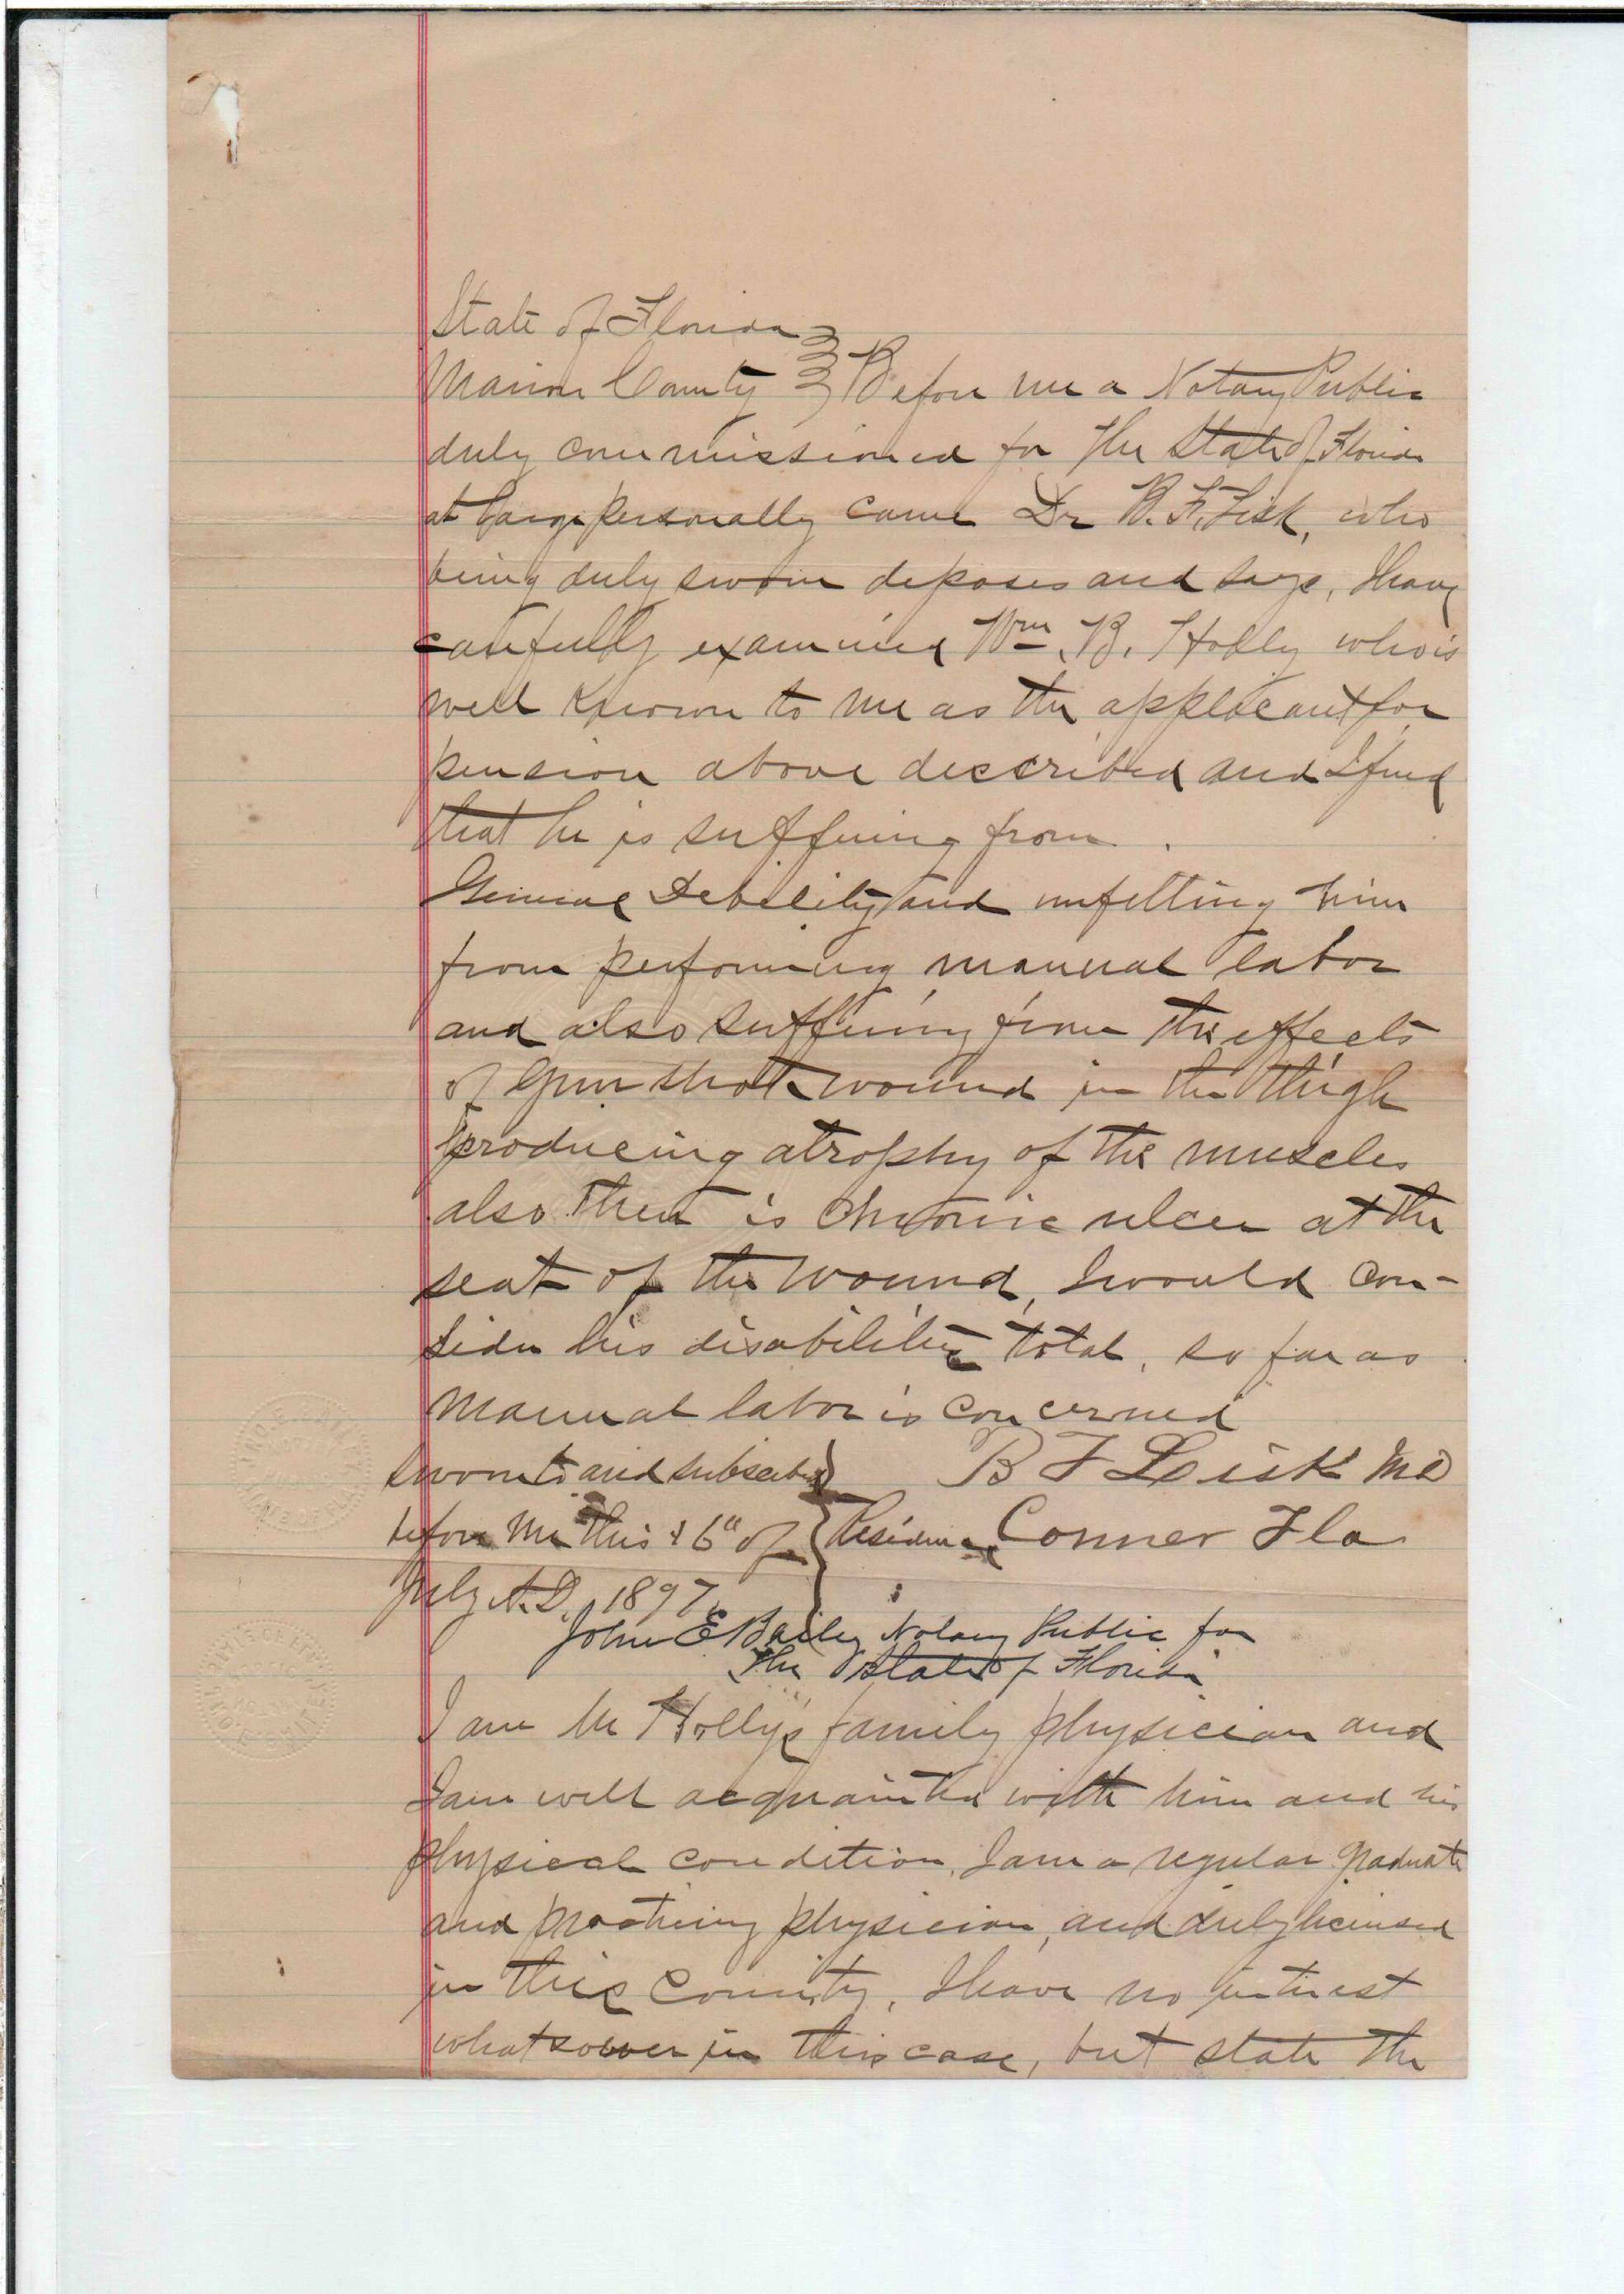 State of Florida
Marion County } Before me a Notary Public
duly commissioned for the State of Florida
at large personally came Dr B. F. Lisk, who
being duly sworn deposes and says, I have
carefully examined Wm. B. Holly who is
well known to me as the applicant for
pension above described and I find
that he is suffering from
General Debility and unfitting him
from performing manual labor
and also suffering from the effects
of gun shot wound in the thigh
producing atrophy of the muscles
also there is chronic ulcer at the
seat of the wound, I would con-
sider his disability total, so far as
manual labor is concerned
Sworn to and subscribed } B F Lisk MD
before me this 6" of } Residence Conner Fla
July A.D. 1897.
John E Bailey Notary Public for
The State of Florida
I am Mr Holly's family physician and
I am well acquainted with him and his
physical condition, I am a regular graduate
and practicing physician, and duly licensed
in this County, I have no interest
whatsoever in this case, but state the